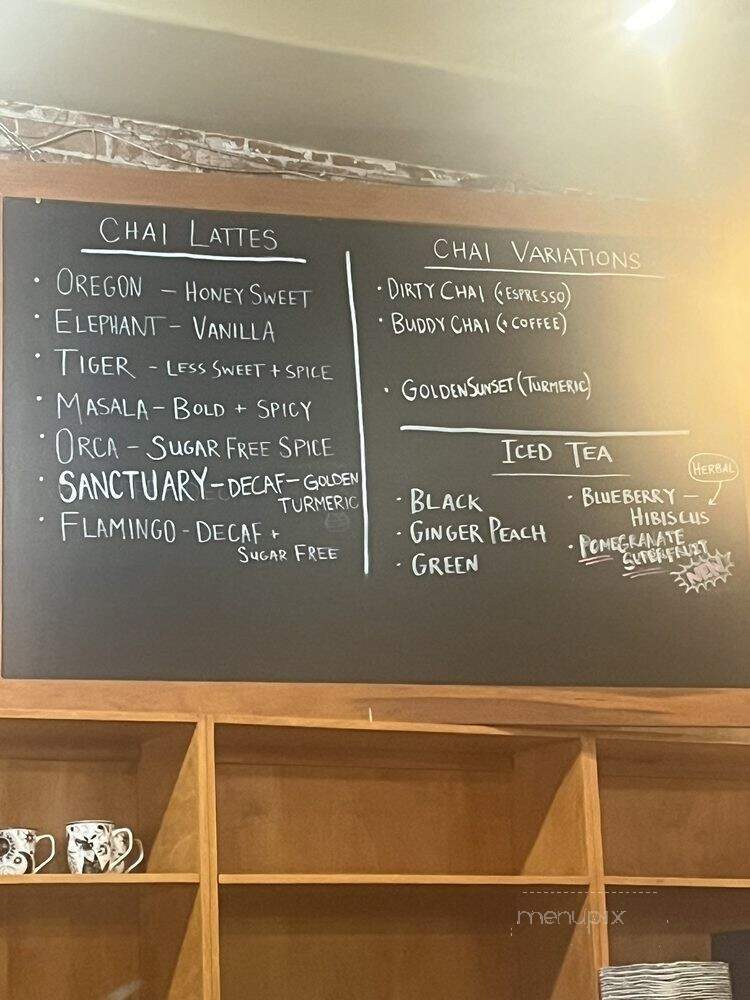 CHAI LATTES
• OREGON – HONEY SWEET
• ELEPHANT – VANILLA
• TIGER – LESS SWEET + SPICE
• MASALA – BOLD + SPICY
• ORCA – SUGAR FREE SPICE
• SANCTUARY – DECAF – GOLDEN
TURMERIC
• FLAMINGO – DECAF +
SUGAR FREE
CHAI VARIATIONS
• DIRTY CHAI (+ ESPRESSO)
• BUDDY CHAI (+ COFFEE)
• GOLDEN SUNSET (TURMERIC)
ICED TEA
• BLACK
• GINGER PEACH
• GREEN
HERBAL
• BLUEBERRY –
HIBISCUS
• POMEGRANATE
SUPERFRUIT
NEW
menupix